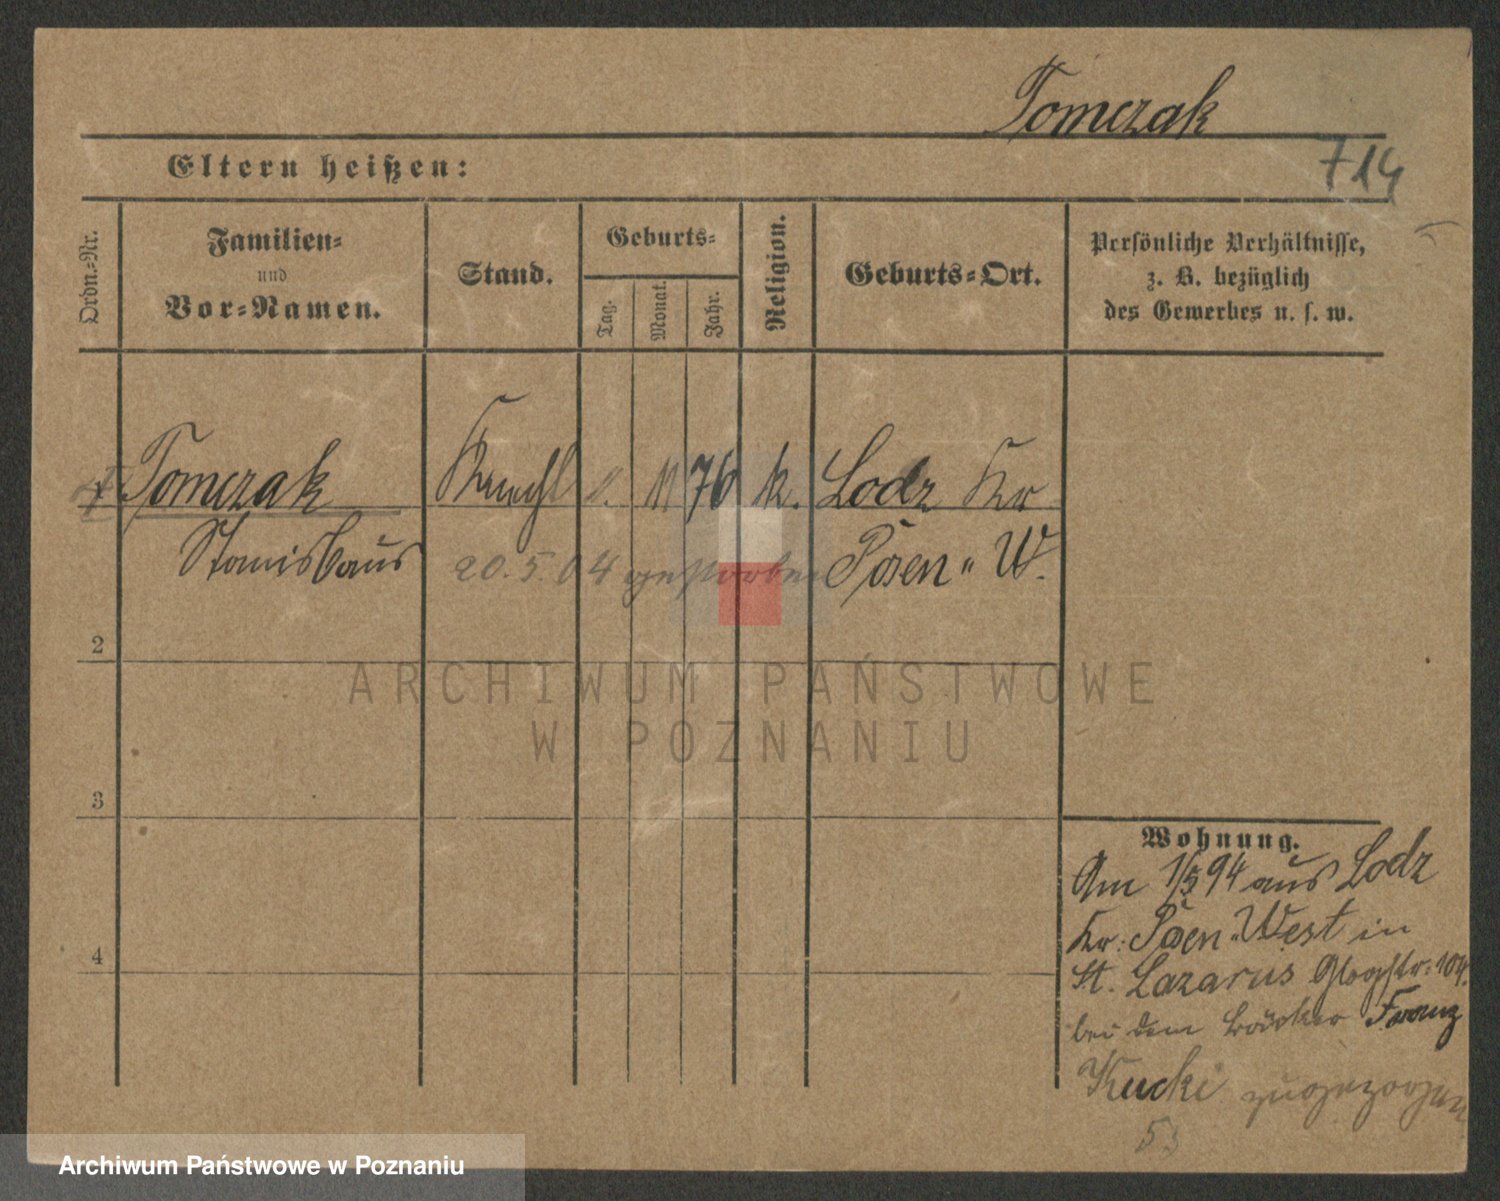 Tomczak
Eltern heißen:
714
Ordn.-Nr.
Familien-
und
Vor-Namen.
Stand.
Geburts-
Tag.
Monat.
Jahr.
Religion.
Geburts-Ort.
Persönliche Verhältnisse,
z. B. bezüglich
des Gewerbes u. s. w.
Tomczak 11 76 k. Lodz Kr
Stanislaus 20.5.04 gestorben Posen W.
2
3
4
Wohnung.
Am 1/5 94 aus Lodz
Kr. Posen West in
St. Lazarus Glogstr. 104.
bei dem Bäcker Franz
Kucki zugezogen
ARCHIWUM PAŃSTWOWE
W POZNANIU
Archiwum Państwowe w Poznaniu